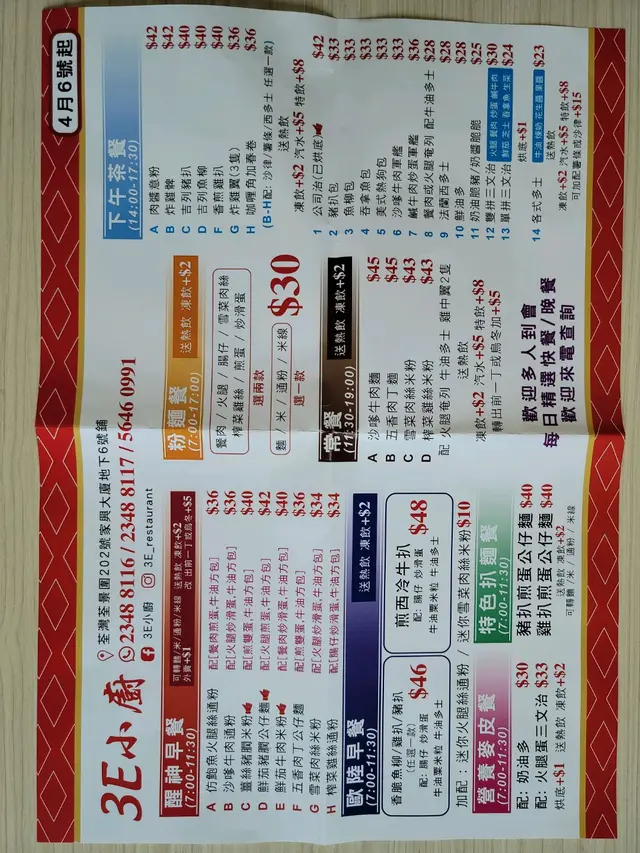 3E小廚
荃灣荃景圍202號家興大廈地下6號舖
2348 8116 / 2348 8117 / 5646 0991
3E小廚 3E_restaurant
4月6號起
醒神早餐
(7:00-11:30)
可轉麵/米/通粉/米線 送熱飲 凍飲+$2
外賣+$1 改出前一丁或烏冬+$5
A 仿鮑魚火腿絲通粉 配[餐肉煎蛋,牛油方包] $36
B 沙嗲牛肉通粉 配[火腿炒滑蛋,牛油方包] $36
C 薑絲豬膶米粉 配[煎雙蛋,牛油方包] $40
D 鮮茄豬膶公仔麵 配[火腿煎蛋,牛油方包] $42
E 鮮茄牛肉米粉 配[餐肉炒滑蛋,牛油方包] $40
F 五香肉丁公仔麵 配[煎雙蛋,牛油方包] $36
G 雪菜肉絲米粉 配[火腿炒滑蛋,牛油方包] $34
H 榨菜雞絲通粉 配[腸仔炒滑蛋,牛油方包] $34
歐陸早餐
(7:00-11:30)
送熱飲 凍飲+$2
香脆魚柳/雞扒/豬扒
(任選一款)
配: 腸仔 炒滑蛋
牛油粟米粒 牛油多士
$46
煎西冷牛扒
配: 腸仔 炒滑蛋
牛油粟米粒 牛油多士
$48
加配：迷你火腿絲通粉 / 迷你雪菜肉絲米粉$10
營養麥皮餐
(7:00-11:30)
配: 奶油多 $30
配: 火腿蛋三文治 $33
烘底+$1 送熱飲 凍飲+$2
特色扒麵餐
(7:00-11:30)
豬扒煎蛋公仔麵 $40
雞扒煎蛋公仔麵 $40
送熱飲 凍飲+$2
可轉麵/米/通粉/米線
粉麵餐
(7:00-17:00)
送熱飲 凍飲+$2
餐肉 / 火腿 / 腸仔 / 雪菜肉絲
榨菜雞絲 / 煎蛋 / 炒滑蛋
選兩款
麵 / 米 / 通粉 / 米線
選一款
$30
常餐
(11:30-19:00)
送熱飲 凍飲+$2
A 沙嗲牛肉麵 $45
B 五香肉丁麵 $45
C 雪菜肉絲米粉 $43
D 榨菜雞絲米粉 $43
配 火腿奄列 牛油多士 雞中翼2隻
送熱飲
凍飲+$2 汽水+$5 特飲+$8
轉出前一丁或烏冬加+$5
歡迎多人到會
每日精選快餐/晚餐
歡迎來電查詢
下午茶餐
(14:00-17:30)
A 肉醬意粉 $42
B 炸雞髀 $42
C 吉列豬扒 $40
D 吉列魚柳 $40
F 香煎雞扒 $40
G 炸雞翼(3隻) $36
H 咖喱角加春卷 $36
(B-H配: 沙律/薯條/西多士 任選一款)
送熱飲
凍飲+$2 汽水+$5 特飲+$8
1 公司治(已烘底) $42
2 豬扒包 $33
3 魚柳包 $33
4 吞拿魚包 $33
5 美式熱狗包 $33
6 沙嗲牛肉軍艦 $33
7 鹹牛肉炒蛋軍艦 $36
8 餐肉或火腿奄列 配牛油多士 $28
9 法蘭西多士 $28
10 鮮油多 $28
11 奶油脆豬/奶醬脆脆 $25
12 雙拼三文治 火腿 餐肉 炒蛋 鹹牛肉 $30
13 單拼三文治 鮮茄 芝士 吞拿魚 生菜 $24
14 各式多士 牛油 煉奶 花生醬 果醬 $23
烘底+$1
送熱飲
凍飲+$2 汽水+$5 特飲+$8
可加配薯條或沙律+$15